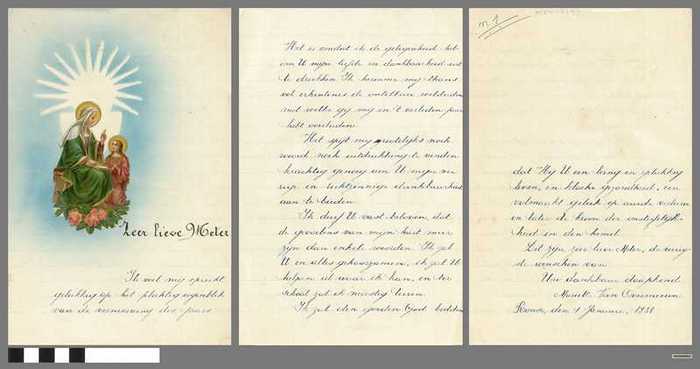 Zeer lieve Meter
Ik voel mij oprecht
gelukkig op het plechtig oogenblik
van de vernieuwing des jaars
Het is omdat ik de gelegenheid heb
om U mijn liefde en dankbaarheid uit
te drukken. Ik herinner mij thans
vol erkentenis de ontelbare weldaden
met welke gij mij in 't verleden jaar
hebt overladen.
Het spijt mij noch
woord noch uitdrukking te vinden
krachtig genoeg om U mijne
en dankbaarheid
aan te bieden.
Ik durf U vast beloven, dat
de gevoelens van mijn hart meer
zijn dan enkele woorden. Ik zal
U in alles gehoorzamen, ik zal U
helpen al waar ik kan, en ter
school zal ik vlijtig leeren.
Ik zal den goeden God bidden
dat Hij U een lang en gelukkig
leven, en kloeke gezondheid, een
volmaakt geluk op aarde
en later de kroon der onsterfelijk-
heid in den hemel.
Dat zijn, zeer lieve Meter, de
wenschen van
Uw dankbare doopkind
Van
den 1 Januarie, 1938